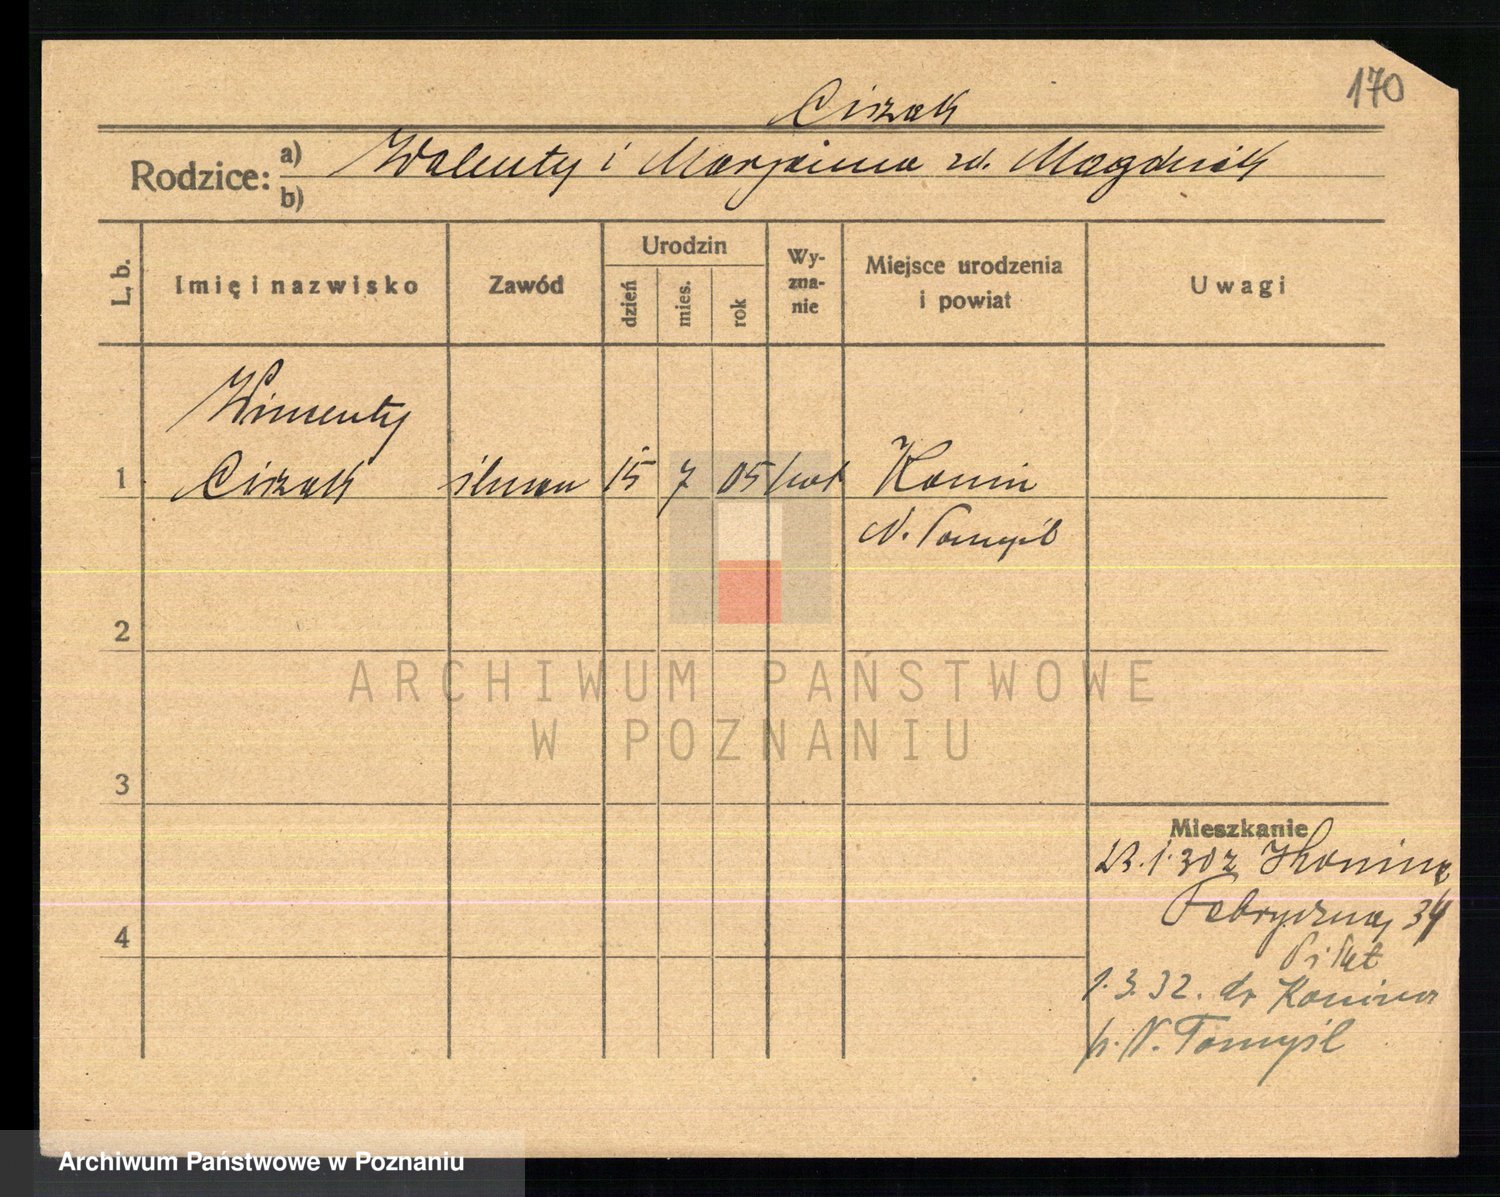 170
Ciszak
Rodzice: a) Walenty i Marjanna zd. Magdziak
b)
L. b.
Imię i nazwisko
Zawód
Urodzin
dzień
mies.
rok
Wy-
zna-
nie
Miejsce urodzenia
i powiat
Uwagi
Wincenty
1 Ciszak 15 7 05 kat Konin
N. Tomyśl
2
3
4
Mieszkanie
z Konina
Fabryczna 34
1.3.32. do Konina
p. N. Tomyśl
ARCHIWUM PAŃSTWOWE
W POZNANIU
Archiwum Państwowe w Poznaniu